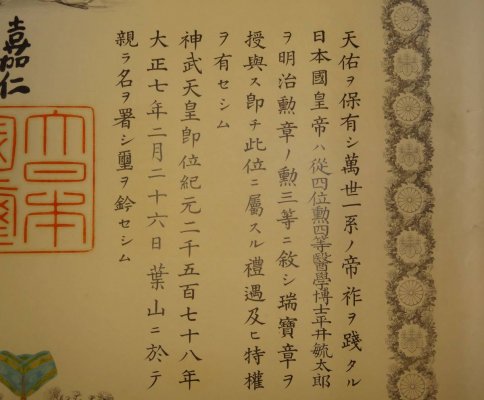 天佑ヲ保有シ萬世一系ノ帝祚ヲ踐タル
日本國皇帝ハ從四位勲四等醫學博士平井毓太郎
ヲ明治勲章ノ勲三等ニ敘シ瑞寶章ヲ
授與ス即チ此位ニ屬スル禮遇及ヒ特權
ヲ有セシム
神武天皇即位紀元二千五百七十八年
大正七年二月二十六日葉山ニ於テ
親ラ名ヲ署シ璽ヲ鈐セシム
嘉仁
大日本
國璽